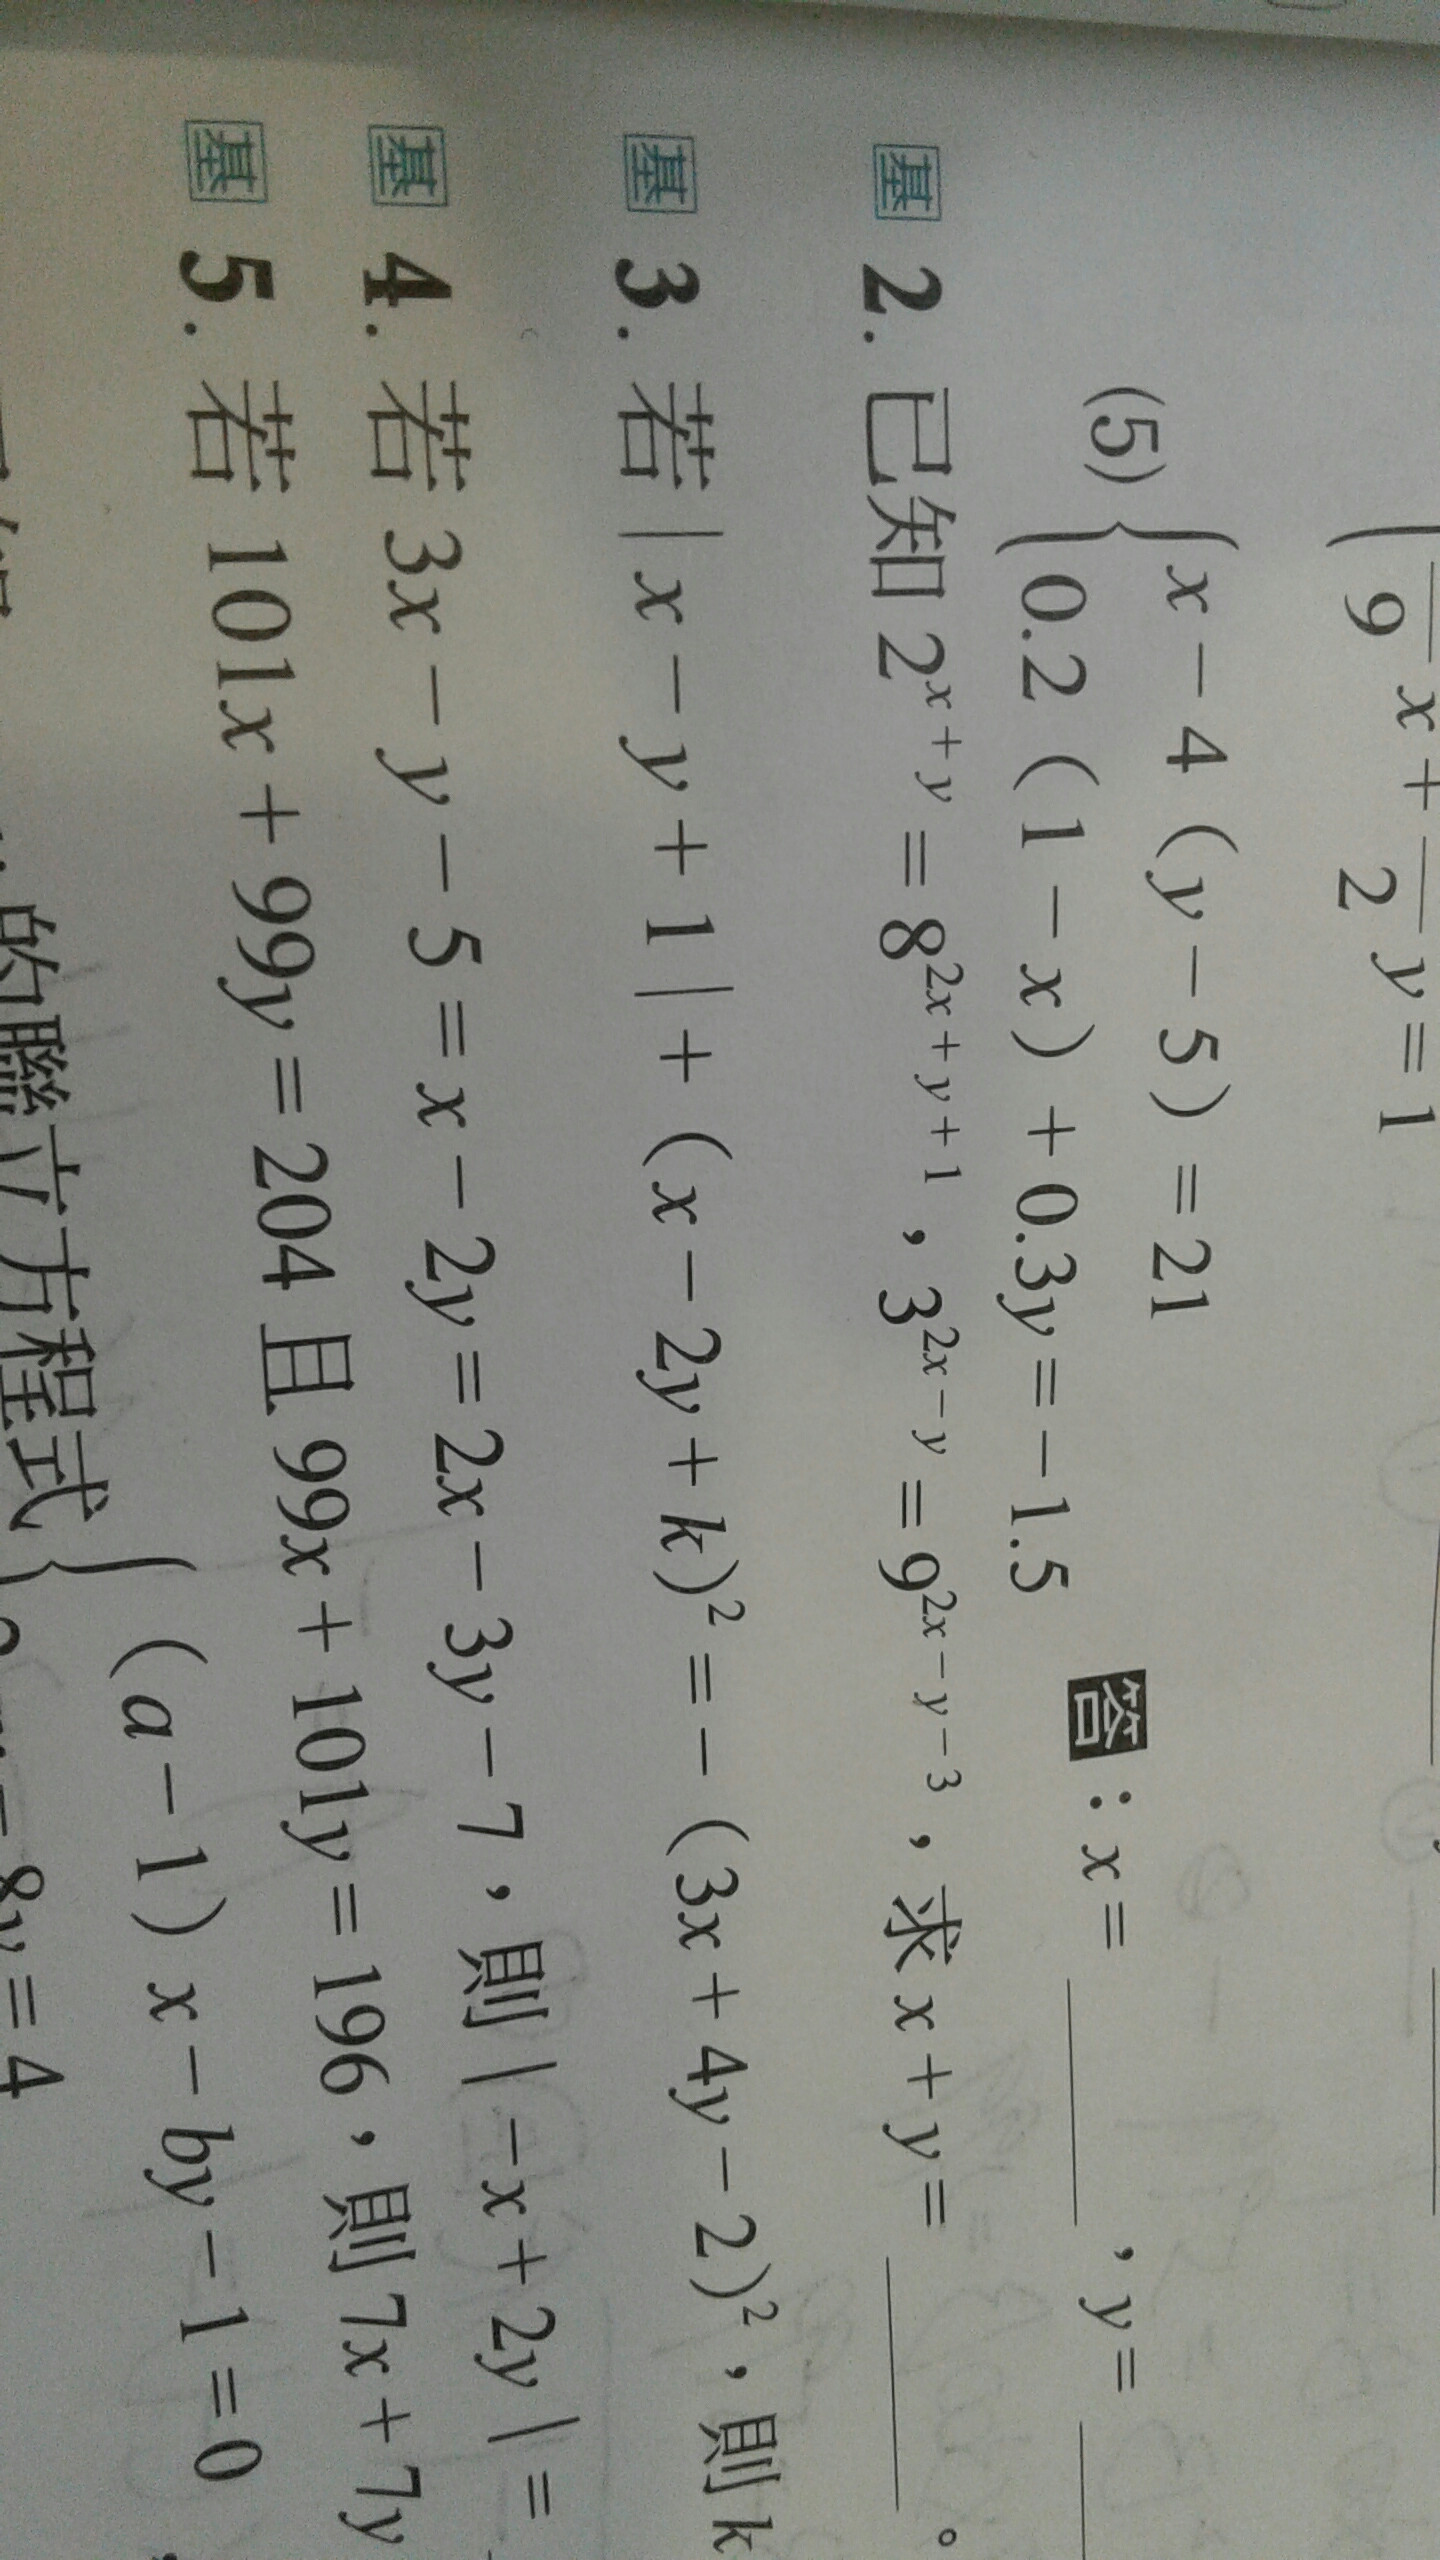 9 x + 2 y = 1
(5) { x − 4 ( y − 5 ) = 21
0.2 ( 1 − x ) + 0.3y = −1.5 答：x = ____ ，y = ____
基 2. 已知 2^{x+y} = 8^{2x+y+1}，3^{2x−y} = 9^{2x−y−3}，求 x + y = ____ 。
基 3. 若 | x − y + 1 | + ( x − 2y + k )² = − ( 3x + 4y − 2 )²，則 k
基 4. 若 3x − y − 5 = x − 2y = 2x − 3y − 7，則 | − x + 2y | =
基 5. 若 101x + 99y = 204 且 99x + 101y = 196，則 7x + 7y
( a − 1 ) x − by − 1 = 0
的聯立方程式 {
− 8y = 4